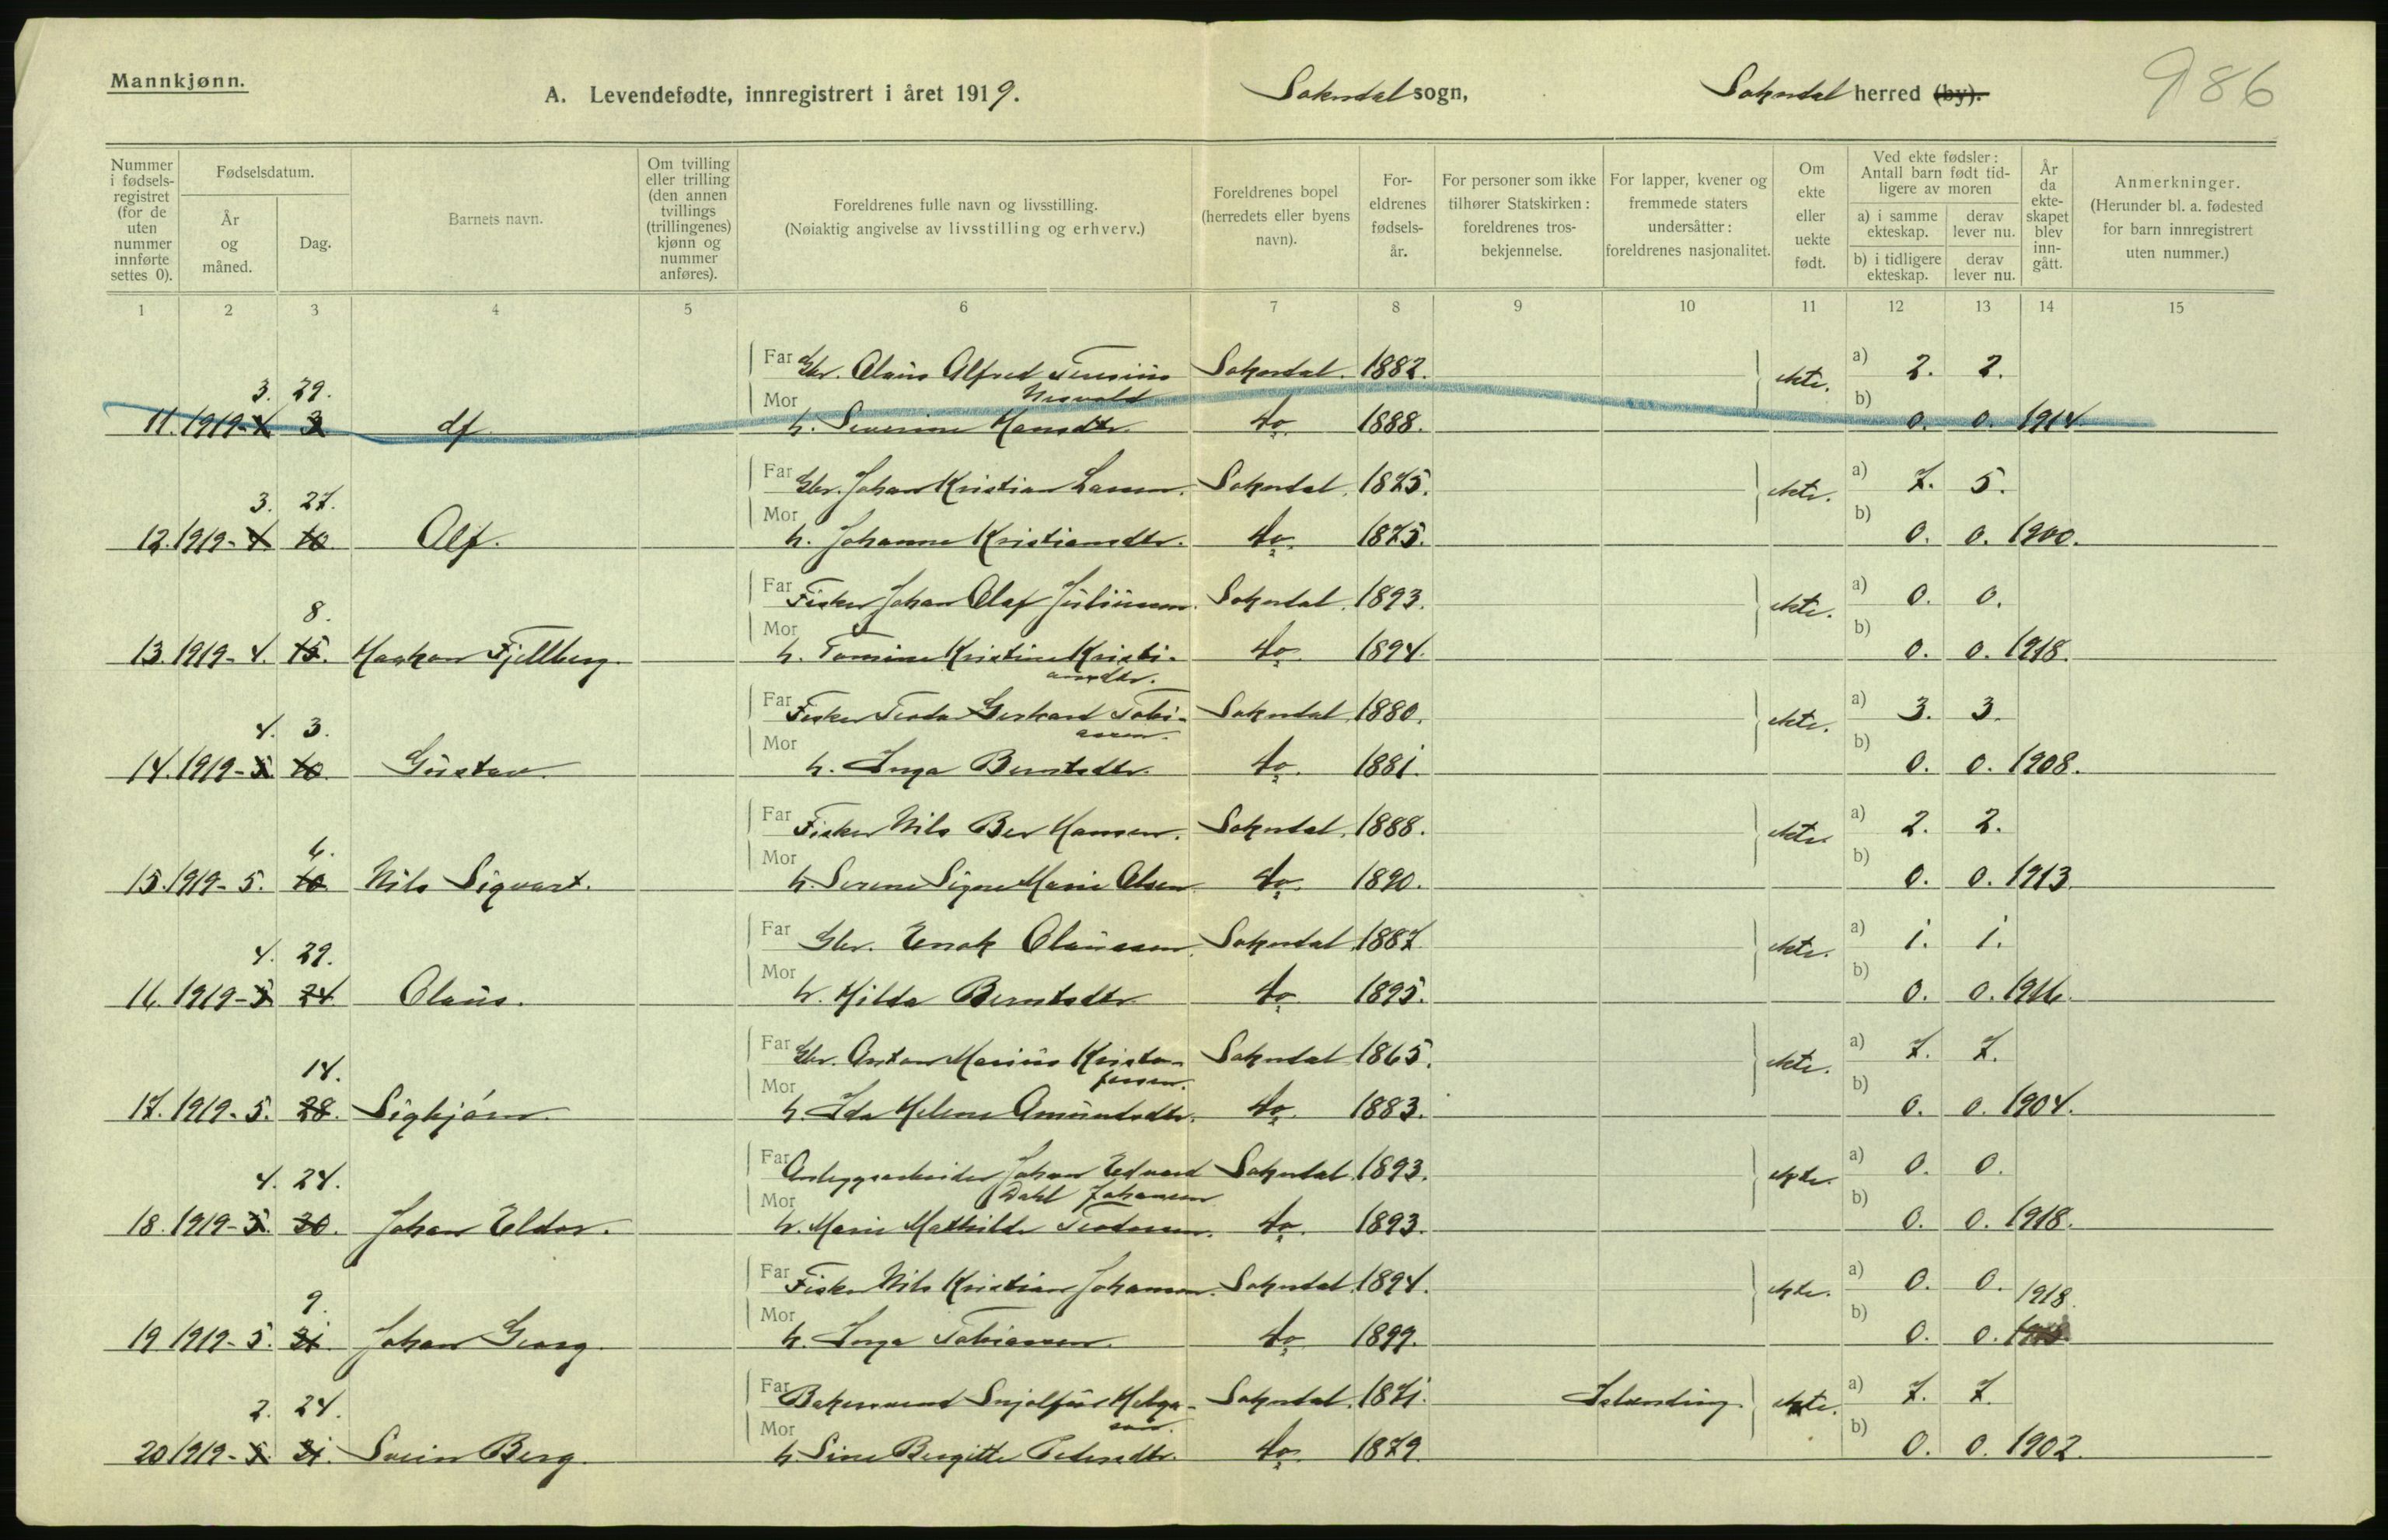 Mannkjønn.
A. Levendefødte, innregistrert i året 1919.
Sokndal sogn,
Sokndal herred (by).
986
Nummer i fødsels-registret (for de uten nummer innførte settes 0).
Fødselsdatum.
År og måned.
Dag.
Barnets navn.
Om tvilling eller trilling (den annen tvillings (trillingenes) kjønn og nummer anføres).
Foreldrenes fulle navn og livsstilling.
(Nøiaktig angivelse av livsstilling og erhverv.)
Foreldrenes bopel (herredets eller byens navn).
For-eldrenes fødsels-år.
For personer som ikke tilhører Statskirken: foreldrenes tros-bekjennelse.
For lapper, kvener og fremmede staters undersåtter: foreldrenes nasjonalitet.
Om ekte eller uekte født.
Ved ekte fødsler: Antall barn født tid-ligere av moren
a) i samme ekteskap.
derav lever nu.
b) i tidligere ekteskap.
derav lever nu.
År da ekte-skapet blev inn-gått.
Anmerkninger.
(Herunder bl. a. fødested for barn innregistrert uten nummer.)
1 2 3 4 5 6 7 8 9 10 11 12 13 14 15
Far Gbr. Claus Alfred Teresius Sokndal. 1882. ekte. a) 2. 2.
3. 29. Mor b)
11. 1919-4 3 df h. Severine Hansdtr. do 1888. 0. 0. 1914.
Far Gbr. Johan Kristian Larsen. Sokndal. 1875. ekte. a) 7. 5.
3. 27. Mor b)
12. 1919-4 10. Alf. h. Johanne Kristiansdtr. do. 1875. 0. 0. 1900.
Far Fisker Johan Olaf Juliussen. Sokndal. 1893. ekte. a) 0. 0.
8. Mor b)
13. 1919-4. 15. Haakon Fjellberg h. Tomine Kristine Kristi- do. 1894. 0. 0. 1918.
ansdtr.
Far Fisker Teodor Gerhard Tobi- Sokndal. 1880. ekte. a) 3. 3.
assen.
4. 3. Mor b)
14. 1919-5. 10. Gustav. h. Inga Berntsdtr. do. 1881. 0. 0. 1908.
Far Fisker Nils Ber Hansen. Sokndal. 1888. ekte. a) 2. 2.
6. Mor b)
15. 1919-5. 10 Nils Sigvart. h. Serene Signe Marie Olsen do. 1890. 0. 0. 1913
Far Gbr. Enok Claussen. Sokndal 1887. ekte. a) 1. 1.
4. 29. Mor b)
16. 1919-5 24. Claus. h. Hilda Berntsdtr do 1895. 0. 0. 1916.
Far Gbr. Anton Marius Kristo- Sokndal 1865. ekte. a) 7. 7.
fersen.
14. Mor b)
17. 1919-5. 28. Sigbjörn. h. Ida Helene Amundsdtr. do. 1883. 0. 0. 1904.
Far Anleggsarbeider Johan Edvard Sokndal. 1893. ekte. a) 0. 0.
Dahl Johansen
4. 24. Mor b)
18. 1919-5. 30. Johan Eldor. h. Marie Mathilde Teodorsen. do. 1893. 0. 0. 1918.
Far Fisker Nils Kristian Johansen. Sokndal. 1894. ekte. a) 0. 0. 1918.
9. Mor b)
19 1919-5. 31. Johan Georg. h. Inga Tobiassen. do 1899. 0. 0.
Far Bakersvend Snjolfur Helga- Sokndal. 1871. Islending. ekte. a) 7. 7.
son.
2. 24. Mor b)
20 1919-5. 31. Svein Berg. h. Sine Bergitte Pedersdtr. do. 1879. 0. 0. 1902.